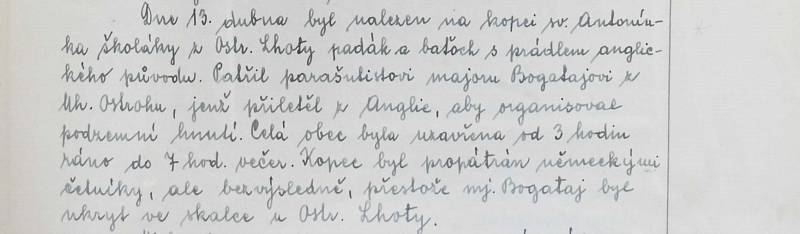 Dne 13. dubna byl nalezen na kopci sv. Antonín-
ka školáky z Ostr. Lhoty padák a baťoch s prádlem anglic-
kého původu. Patřil parašutistovi majoru Bogatajovi z
Uh. Ostrohu, jenž přiletěl z Anglie, aby organisoval
podzemní hnutí. Celá obec byla uzavřena od 3 hodin
ráno do 7 hod. večer. Kopec byl propátrán německými
četníky, ale bezvýsledně, přestože mj. Bogataj byl
ukryt ve skalce u Ostr. Lhoty.